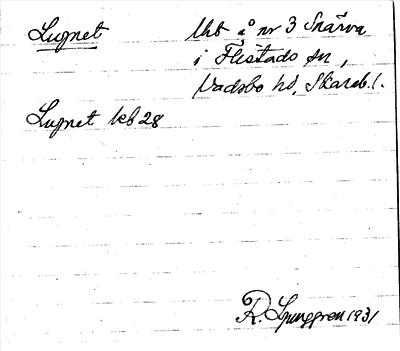 Lugnet
Utb å nr 3 Snärva
i Flistads sn,
Vadsbo hd, Skarab. l.
Lugnet kb 28
R. Ljunggren 1931